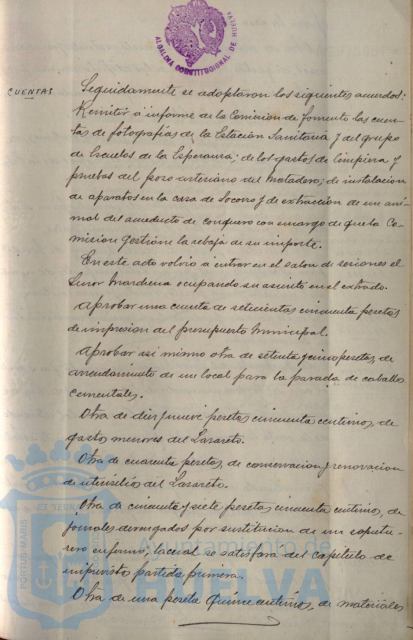 ALCALDIA CONSTITUCIONAL DE HUELVA
CUENTAS
Seguidamente se adoptaron los siguientes acuerdos:
Remitir á informe de la Comision de Fomento las cuen-
tas de fotografías de la Estación Sanitaria y del grupo
de Escuelas de la Esperanza; de los gastos de limpieza y
pruebas del pozo arteriano del Matadero; de instalacion
de aparatos en la casa de Socorro y de extraccion de un ani-
mal del acueducto de conquero con encargo de que la Co-
mision gestione la rebaja de su importe.
En este acto volvio á entrar en el salon de sesiones el
Señor Marchena ocupando su asiento en el estrado.
Aprobar una cuenta de setecientas cincuenta pesetas
de impresion del presupuesto Municipal.
Aprobar asi mismo otra de setenta y cinco pesetas, de
arrendamiento de un local para la parada de caballos
sementales.
Otra de diez y nueve pesetas cincuenta centimos, de
gastos menores del Lazareto.
Otra de cuarenta pesetas, de conservacion y renovacion
de utensilios del Lazareto.
Otra de cincuenta y siete pesetas cincuenta centimos, de
jornales devengados por sustitucion de un sepultu-
rero enfermo, la cual se satisfará del capitulo de
imprevistos partida primera.
Otra de una peseta quince centimos, de materiales
PORTUS MARIS
Ayuntamiento de
HUELVA